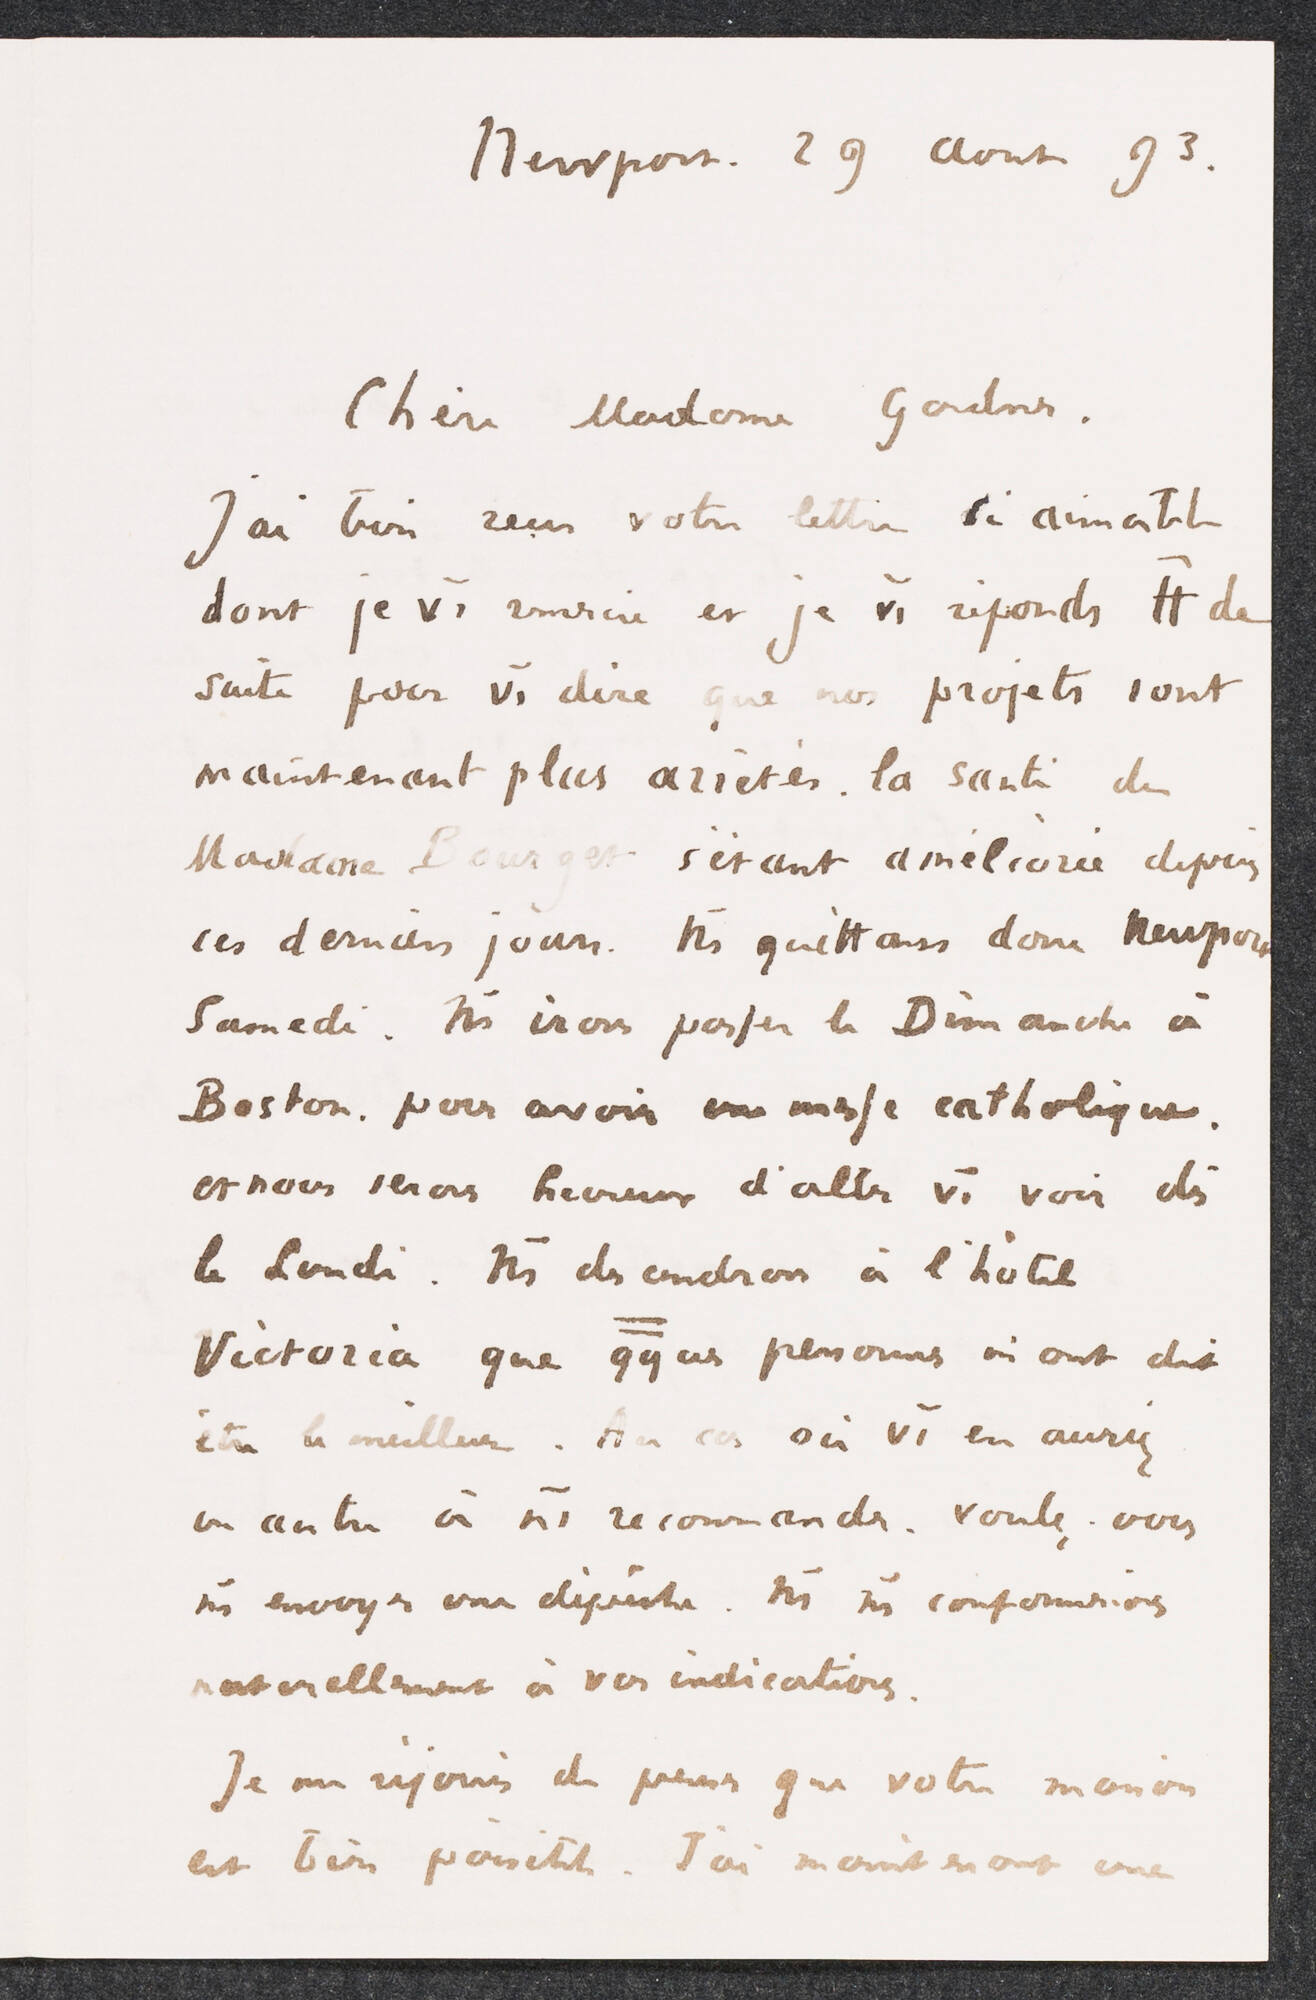 Newport. 29 Aout 93.
Chère Madame Gardner.
J'ai bien reçu votre lettre si aimable
dont je vs remercie et je vs réponds tt de
suite pour vs dire que nos projets sont
maintenant plus arrêtés. la santé de
Madame Bourget s'étant améliorée depuis
ces derniers jours. Ns quittons donc Newport
Samedi. Ns irons passer le Dimanche à
Boston. pour avoir une messe catholique.
et nous serons heureux d'aller vs voir dès
le Lundi. Ns descendrons à l'hôtel
Victoria que qques personnes m'ont dit
être le meilleur. Au cas où vs en auriez
un autre à ns recommander. voulez-vous
ns envoyer une dépêche. Ns ns conformerions
naturellement à vos indications.
Je me réjouis de penser que votre maison
est bien paisible. J'ai maintenant une